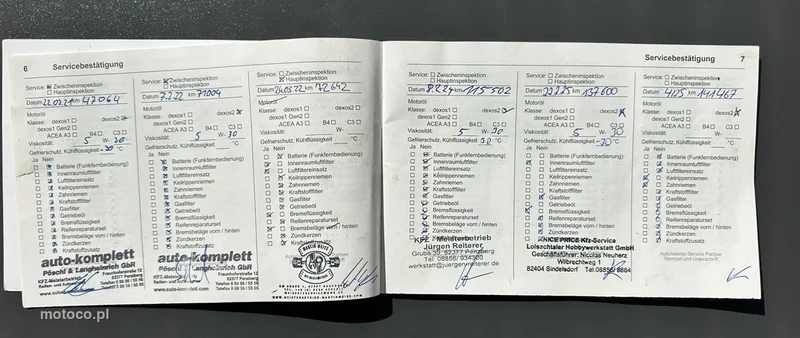 6 Servicebestätigung
Service: Zwischeninspektion
Hauptinspektion
Datum 22.02.21 km 47064
Motoröl
Klasse: dexos1 dexos2
dexos1 Gen2
ACEA A3 B4 C3
Viskosität: 5 W- 30
Gefrierschutz, Kühlflüssigkeit -30 °C
Ja Nein
Batterie (Funkfernbedienung)
Innenraumluftfilter
Luftfiltereinsatz
Keilrippenriemen
Zahnriemen
Kraftstofffilter
Gasfilter
Getriebeöl
Bremsflüssigkeit
Reifenreparaturset
Bremsbeläge vorn / hinten
Zündkerzen
Kraftstoffzusatz
auto-komplett
Pöschl & Langheinrich GbR
KFZ-Meisterbetrieb
Service: Zwischeninspektion
Hauptinspektion
Datum km 71004
Motoröl
Klasse: dexos1 dexos2
dexos1 Gen2
ACEA A3 B4 C3
Viskosität: 5 W- 30
Gefrierschutz, Kühlflüssigkeit °C
Ja Nein
Batterie (Funkfernbedienung)
Innenraumluftfilter
Luftfiltereinsatz
Keilrippenriemen
Zahnriemen
Kraftstofffilter
Gasfilter
Getriebeöl
Bremsflüssigkeit
Reifenreparaturset
Bremsbeläge vorn / hinten
Zündkerzen
Kraftstoffzusatz
auto-komplett
Pöschl & Langheinrich GbR
www.auto-komplett.com
Service: Zwischeninspektion
Hauptinspektion
Datum 24.03.22 km 72642
Motoröl
Klasse: dexos1 dexos2
dexos1 Gen2
ACEA A3 B4 C3
Viskosität: W-
Gefrierschutz, Kühlflüssigkeit °C
Ja Nein
Batterie (Funkfernbedienung)
Innenraumluftfilter
Luftfiltereinsatz
Keilrippenriemen
Zahnriemen
Kraftstofffilter
Gasfilter
Getriebeöl
Bremsflüssigkeit
Reifenreparaturset
Bremsbeläge vorn / hinten
Zündkerzen
Kraftstoffzusatz
Servicebestätigung 7
Service: Zwischeninspektion
Hauptinspektion
Datum km 115502
Motoröl
Klasse: dexos1 dexos2
dexos1 Gen2
ACEA A3 B4 C3
Viskosität: 5 W- 30
Gefrierschutz, Kühlflüssigkeit °C
Ja Nein
Batterie (Funkfernbedienung)
Innenraumluftfilter
Luftfiltereinsatz
Keilrippenriemen
Zahnriemen
Kraftstofffilter
Gasfilter
Getriebeöl
Bremsflüssigkeit
Reifenreparaturset
Bremsbeläge vorn / hinten
Zündkerzen
KFZ - Meisterbetrieb
Jürgen Reiterer
Grube 39, 82377 Penzberg
Tel. 08856/ 934300
werkstatt@juergenreiterer.de
Service: Zwischeninspektion
Hauptinspektion
Datum km 137600
Motoröl
Klasse: dexos1 dexos2
dexos1 Gen2
ACEA A3 B4 C3
Viskosität: 5 W- 30
Gefrierschutz, Kühlflüssigkeit -30 °C
Ja Nein
Batterie (Funkfernbedienung)
Innenraumluftfilter
Luftfiltereinsatz
Keilrippenriemen
Zahnriemen
Kraftstofffilter
Gasfilter
Getriebeöl
Bremsflüssigkeit
Reifenreparaturset
Bremsbeläge vorn / hinten
NICE PRICE Kfz-Service
Loisachtaler Hobbywerkstatt GmbH
Geschäftsführer: Nicolas Neuherz
82404 Sindelsdorf
Service: Zwischeninspektion
Hauptinspektion
Datum km 141467
Motoröl
Klasse: dexos1 dexos2
dexos1 Gen2
ACEA A3 B4 C3
Viskosität: W-
Gefrierschutz, Kühlflüssigkeit °C
Ja Nein
Batterie (Funkfernbedienung)
Innenraumluftfilter
Luftfiltereinsatz
Keilrippenriemen
Zahnriemen
Kraftstofffilter
Gasfilter
Getriebeöl
Bremsflüssigkeit
Reifenreparaturset
Bremsbeläge vorn / hinten
Zündkerzen
Kraftstoffzusatz
Autorisierter Service Partner
Stempel und Unterschrift
motoco.pl